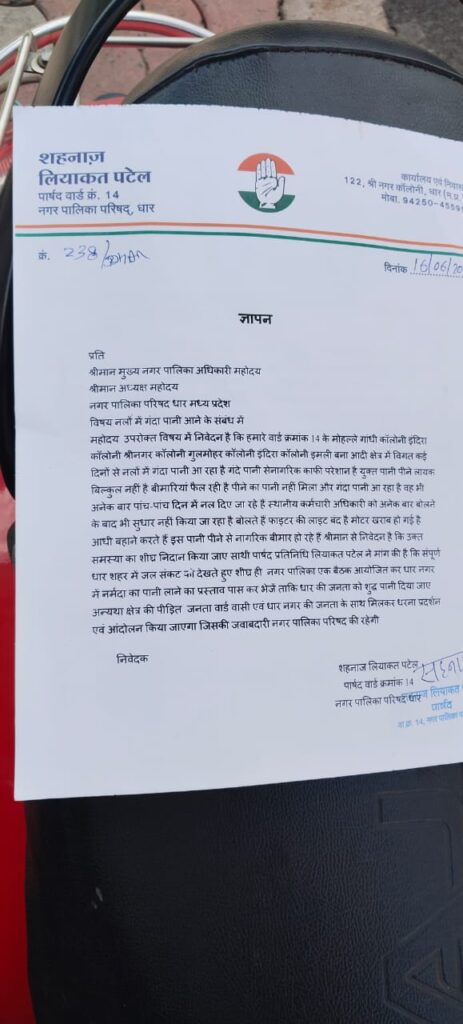 शहनाज़
लियाकत पटेल
पार्षद वार्ड क्रं. 14
नगर पालिका परिषद्, धार
कार्यालय एवं निवास
122, श्री नगर कॉलोनी, धार (म.प्र.
मोबा. 94250-4559
क्रं. 238/
दिनांक 16/06/20
ज्ञापन
प्रति
श्रीमान मुख्य नगर पालिका अधिकारी महोदय
श्रीमान अध्यक्ष महोदय
नगर पालिका परिषद धार मध्य प्रदेश
विषय नलों में गंदा पानी आने के संबंध में
महोदय उपरोक्त विषय में निवेदन है कि हमारे वार्ड क्रमांक 14 के मोहल्ले गांधी कॉलोनी इंदिरा
कॉलोनी श्रीनगर कॉलोनी गुलमोहर कॉलोनी इंदिरा कॉलोनी इमली बना आदी क्षेत्र में विगत कई
दिनों से नलों में गंदा पानी आ रहा है गंदे पानी सेनागरिक काफी परेशान है युक्त पानी पीने लायक
बिल्कुल नहीं है बीमारियां फैल रही है पीने का पानी नहीं मिला और गंदा पानी आ रहा है वह भी
अनेक बार पांच-पांच दिन में नल दिए जा रहे हैं स्थानीय कर्मचारी अधिकारी को अनेक बार बोलने
के बाद भी सुधार नहीं किया जा रहा है बोलते हैं फाइटर की लाइट बंद है मोटर खराब हो गई है
आधी बहाने करते हैं इस पानी पीने से नागरिक बीमार हो रहे हैं श्रीमान से निवेदन है कि उक्त
समस्या का शीघ्र निदान किया जाए साथी पार्षद प्रतिनिधि लियाकत पटेल ने मांग की है कि संपूर्ण
धार शहर में जल संकट को देखते हुए शीघ्र ही नगर पालिका एक बैठक आयोजित कर धार नगर
में नर्मदा का पानी लाने का प्रस्ताव पास कर भेजें ताकि धार की जनता को शुद्ध पानी दिया जाए
अन्यथा क्षेत्र की पीड़ित जनता वार्ड वासी एवं धार नगर की जनता के साथ मिलकर धरना प्रदर्शन
एवं आंदोलन किया जाएगा जिसकी जवाबदारी नगर पालिका परिषद की रहेगी
निवेदक
शहनाज लियाकत पटेल
पार्षद वार्ड क्रमांक 14
नगर पालिका परिषद धार
शहनाज लियाकत
पार्षद
वा.क्र. 14, नगर पालिका